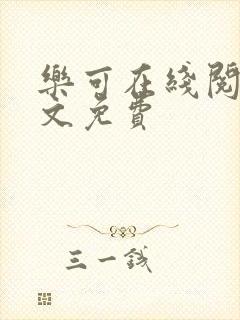 樂可在綫閱
文免費
三一錢